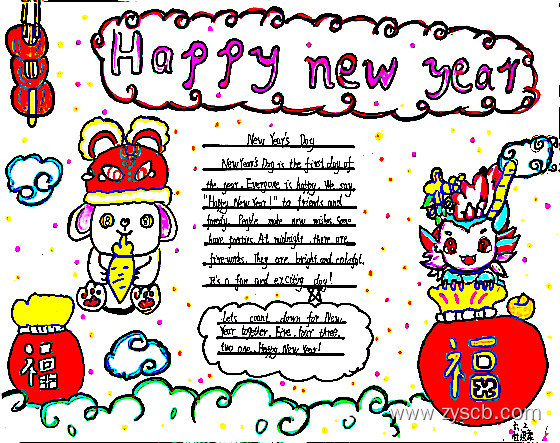 Happy new year
New Year's Day
New Year's Day is the first day of
the year. Everyone is happy. We say
"Happy New Year!" to friends and
family. People make new wishes. Some
have parties. At midnight, there are
fireworks. They are bright and colorful.
It's a fun and exciting day!
Lets count down for New
Year together. Five, four three,
two one, Happy New Year!
福
福
www.zyscb.com